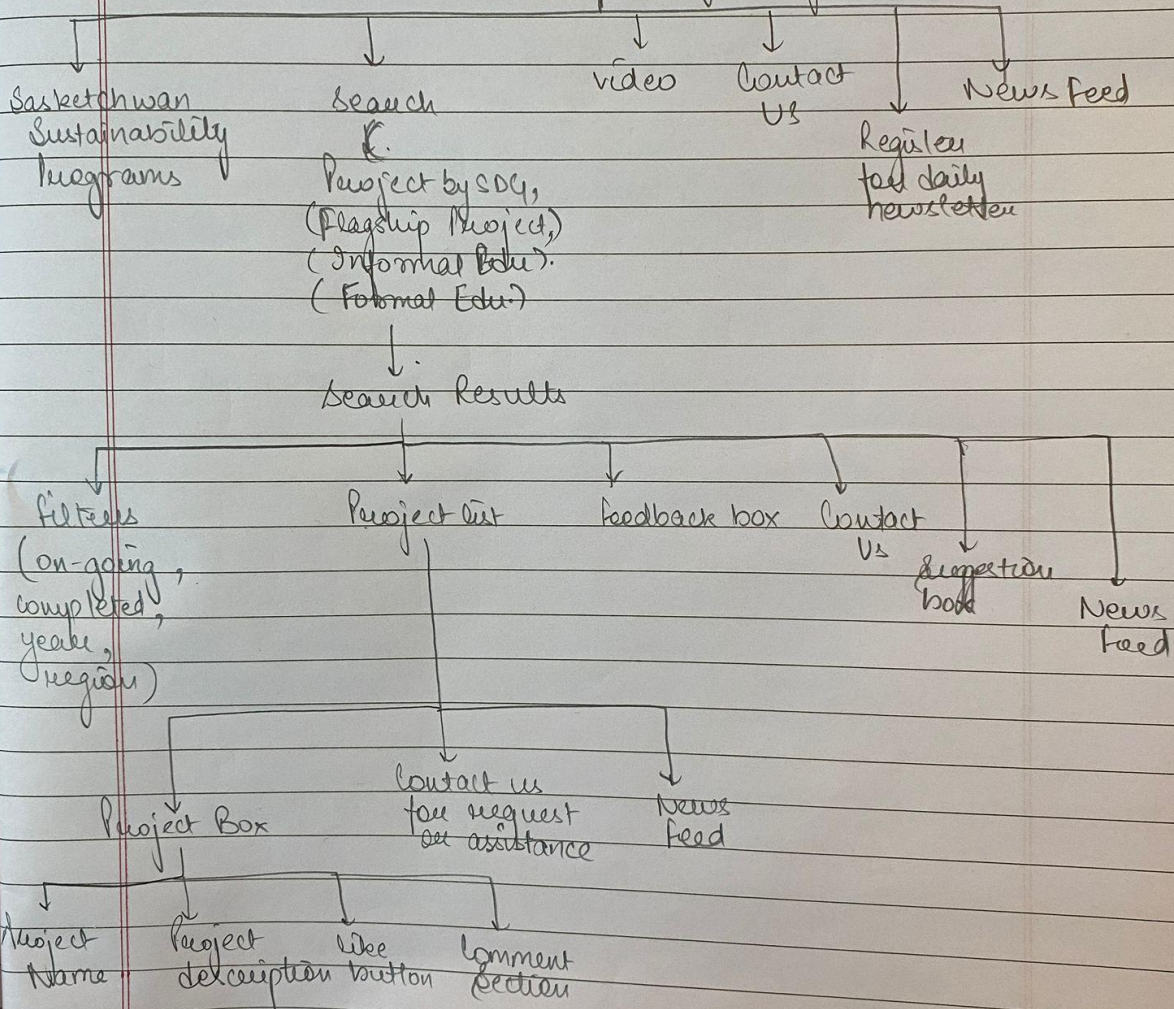 Sasketchwan
Sustainability
Programs
Search
Project by SDG,
(Flagship Project,)
(Informal Edu).
(Formal Edu.)
video
Contact
Us
Register
for daily
newsletter
News Feed
Search Results
filters
(on-going,
completed,
year,
region)
Project list
feedback box
Contact
Us
Suggestion
box
News
feed
Project Box
Contact us
for request
or assistance
News
feed
Project
Name
Project
description
like
button
Comment
Section